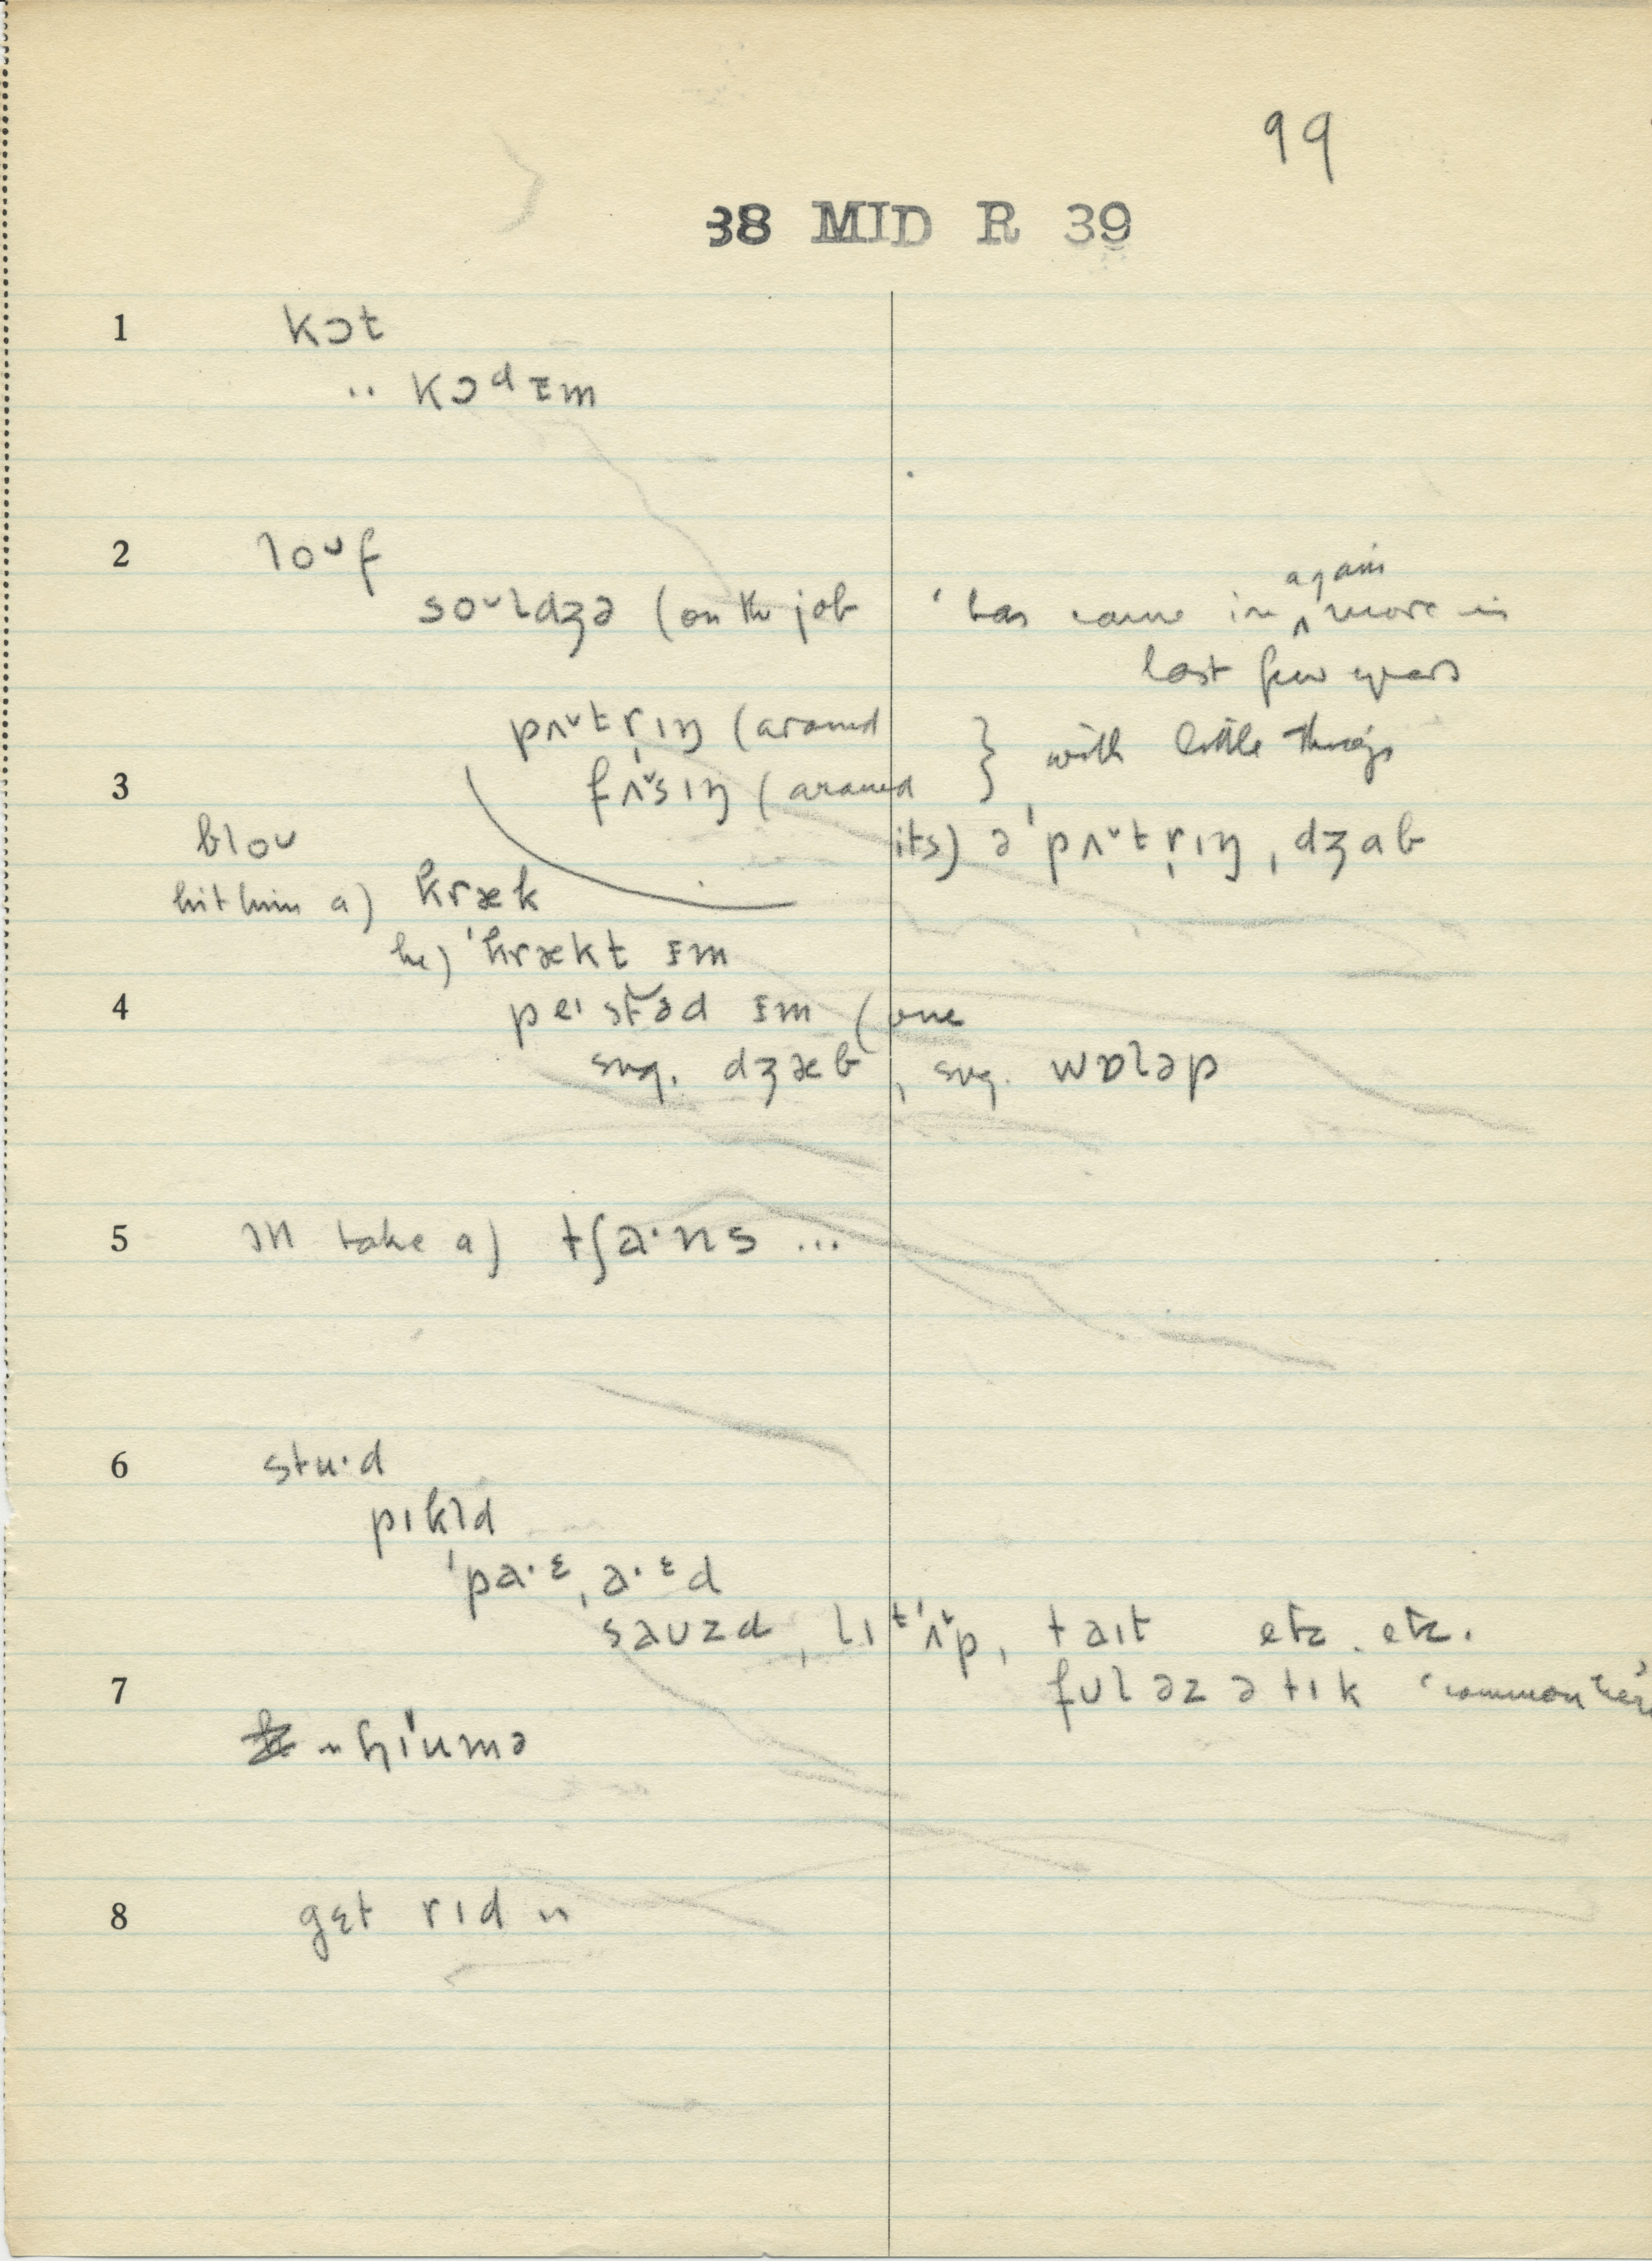 99
38 MID R 39
1 kɔt
·· kɔᵈɪm
2 loᵕf
soᵕldʒə (on the job ' has come in again more in
last few years
pʌᵕtr̩ɪŋ (around
3 fʌᵕsɪŋ (around } with little things
bloᴜ its) ə'pʌᵕtr̩ɪŋ ˌdʒab
hit him a) kræk
he) 'krækt ɪm
4 peɪstəd ɪm (one
sug. dʒæb, sug. wɒləp
5 take a) tʃa·ns ...
6 stu·d
pɪkld
'pa·ᵋˌa·ᵋd
saᴜzd, lɪᵗ'ʌᵕp, taɪt etc. etc.
7 fᴜl əz ə tɪk 'common here
hɪ'umə
8 gɛt rɪd